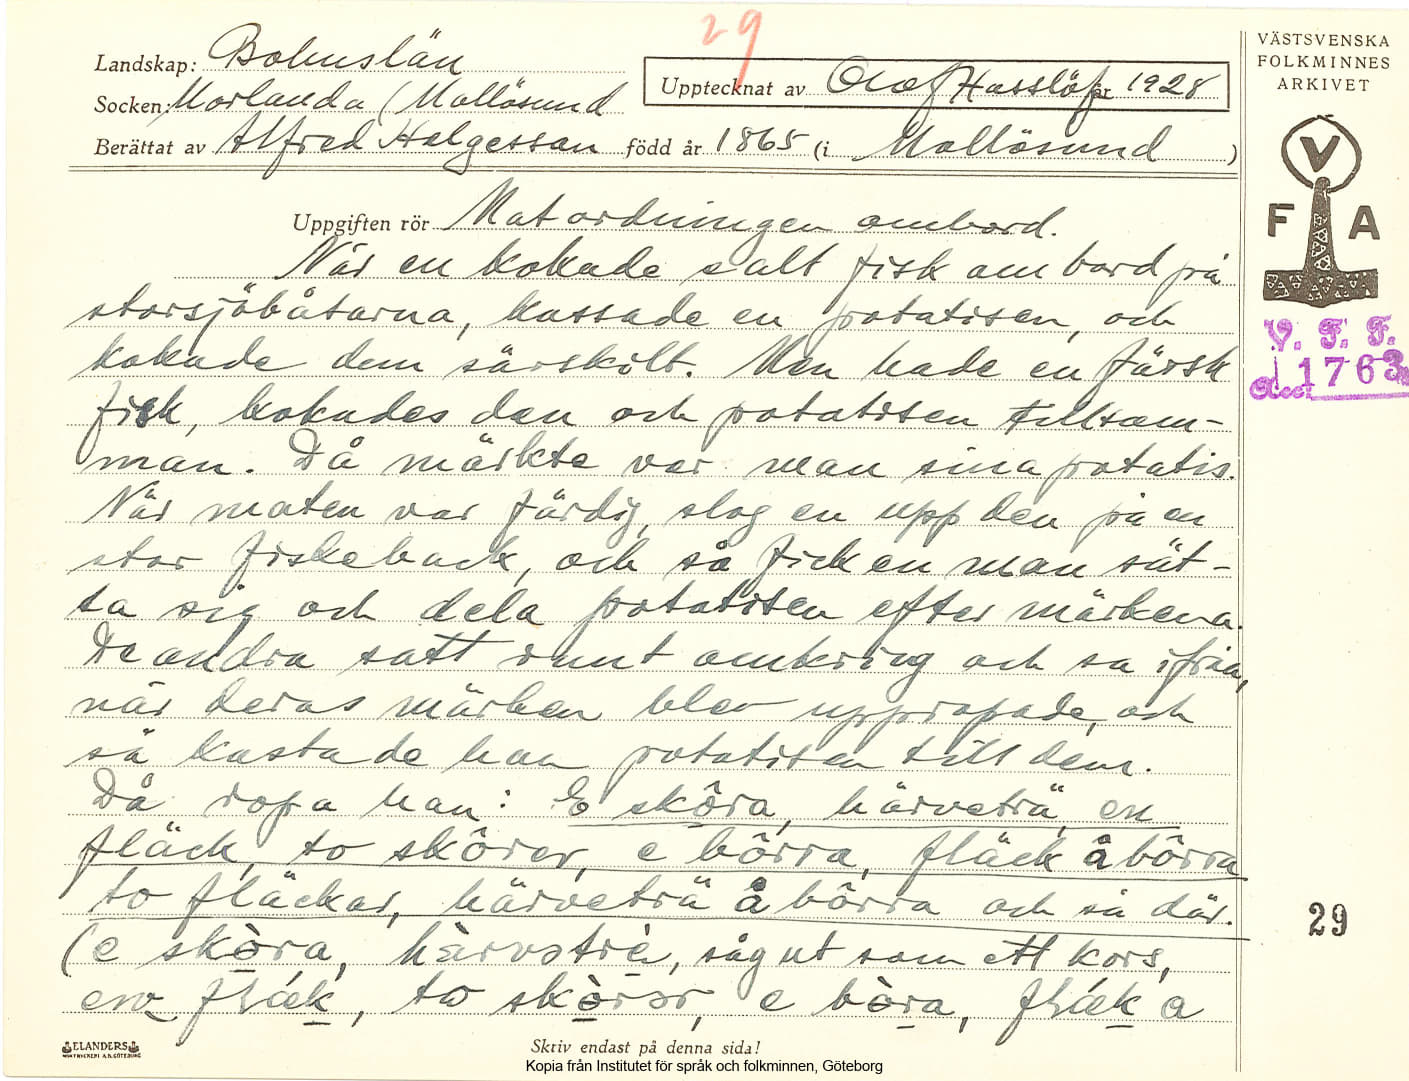 29
Landskap: Bohuslän
Socken: Morlanda (Mollösund
Upptecknat av Olof Hasslöf år 1928
Berättat av Alfred Helgesson född år 1865 (i Mollösund )
Uppgiften rör Matordningen ombord.
När en kokade salt fisk ombord på
storsjöbåtarna, kassade en potatisen, och
kokade dem särskilt. Men hade en färsk
fisk, kokades den och potatisen tillsam-
man. Då märkte var man sina potatis.
När maten var färdig, slog en upp den på en
stor fiskeback, och så fick en man sät-
ta sig och dela potatisen efter märkena.
De andra satt runt omkring och sa ifrån,
när deras märken blev uppropade, och
så kastade han potatisen till dem.
Då ropa han: E skôra, härveträ, en
fläck, to skôrer, e bôrra, fläck å bôrra
to fläckar, härveträ å bôrra och så där.
(e skòra, hàrvstrè, såg ut som ett kors,
en flák, to skòror, e bòra, flák a
Skriv endast på denna sida!
ELANDERS
BOKTRYCKERI A.B. GÖTEBORG
Kopia från Institutet för språk och folkminnen, Göteborg
VÄSTSVENSKA
FOLKMINNES
ARKIVET
V
F A
V. F. F.
Acc. 1763
29